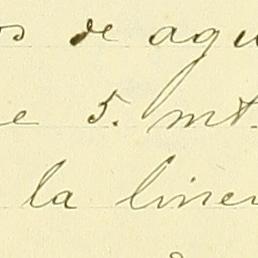 os de agu
e 5. mt
la line